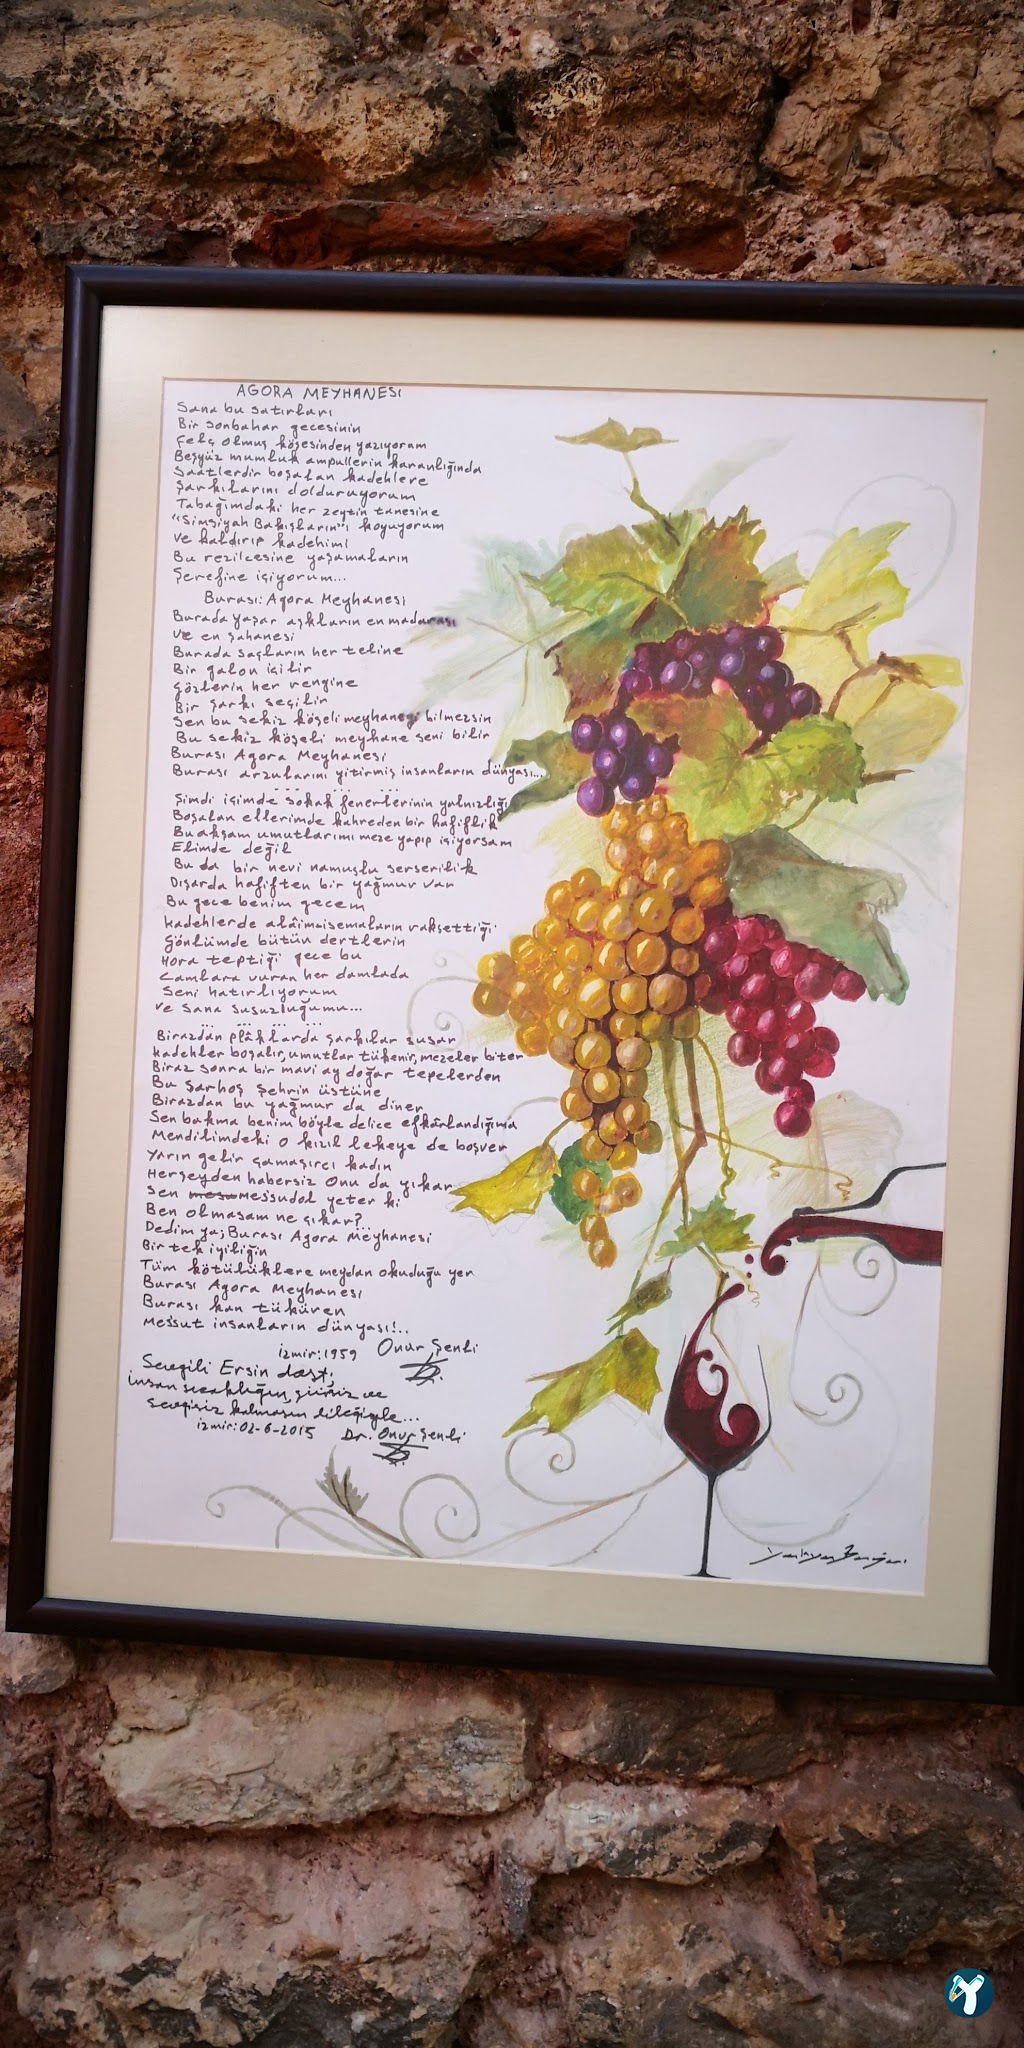 AGORA MEYHANESI
Sana bu satırları
Bir sonbahar gecesinin
Felç olmuş köşesinden yazıyorum
Beşyüz mumluk ampullerin karanlığında
Saatlerdir boşalan kadehlere
Şarkılarını dolduruyorum
Tabağımdaki her zeytin tanesine
"Simsiyah Bakışların"ı koyuyorum
Ve kaldırıp kadehimi
Bu rezilcesine yaşamaların
Şerefine içiyorum...
Burası: Agora Meyhanesi
Burada yaşar aşkların en madarası
Ve en şahanesi
Burada saçların her teline
Bir galon içilir
Gözlerin her rengine
Bir şarkı seçilir
Sen bu sekiz köşeli meyhaneyi bilmezsin
Bu sekiz köşeli meyhane seni bilir
Burası Agora Meyhanesi
Burası arzularını yitirmiş insanların dünyası...
... ... ... ...
Şimdi içimde sokak fenerlerinin yalnızlığı
Boşalan ellerimde kahreden bir hafiflik
Bu akşam umutlarımı meze yapıp içiyorsam
Elimde değil
Bu da bir nevi namuslu serserilik
Dışarda hafiften bir yağmur var
Bu gece benim gecem
Kadehlerde alâim-i semaların raksettiği
Gönlümde bütün dertlerin
Hora teptiği gece bu
Camlara vuran her damlada
Seni hatırlıyorum
Ve sana susuzluğumu...
... ... ... ...
Birazdan plâklarda şarkılar susar
Kadehler boşalır, umutlar tükenir, mezeler biter
Biraz sonra bir mavi ay doğar tepelerden
Bu sarhoş şehrin üstüne
Birazdan bu yağmur da diner
Sen bakma benim böyle delice efkârlandığıma
Mendilimdeki o kızıl lekeye de boşver
Yarın gelir çamaşırcı kadın
Herşeyden habersiz onu da yıkar
Sen mes'ud ol yeter ki
Ben olmasam ne çıkar?
Dedim ya; Burası Agora Meyhanesi
Bir tek iyiliğin
Tüm kötülüklere meydan okuduğu yer
Burası Agora Meyhanesi
Burası kan tüküren
Mes'ut insanların dünyası!..
İzmir: 1959 Onur Şenli
Sevgili Ersin dost,
insan sıcaklığın, şiirsiz ve
sevgisiz kalmasın dileğiyle...
İzmir: 02-6-2015 Dr. Onur Şenli